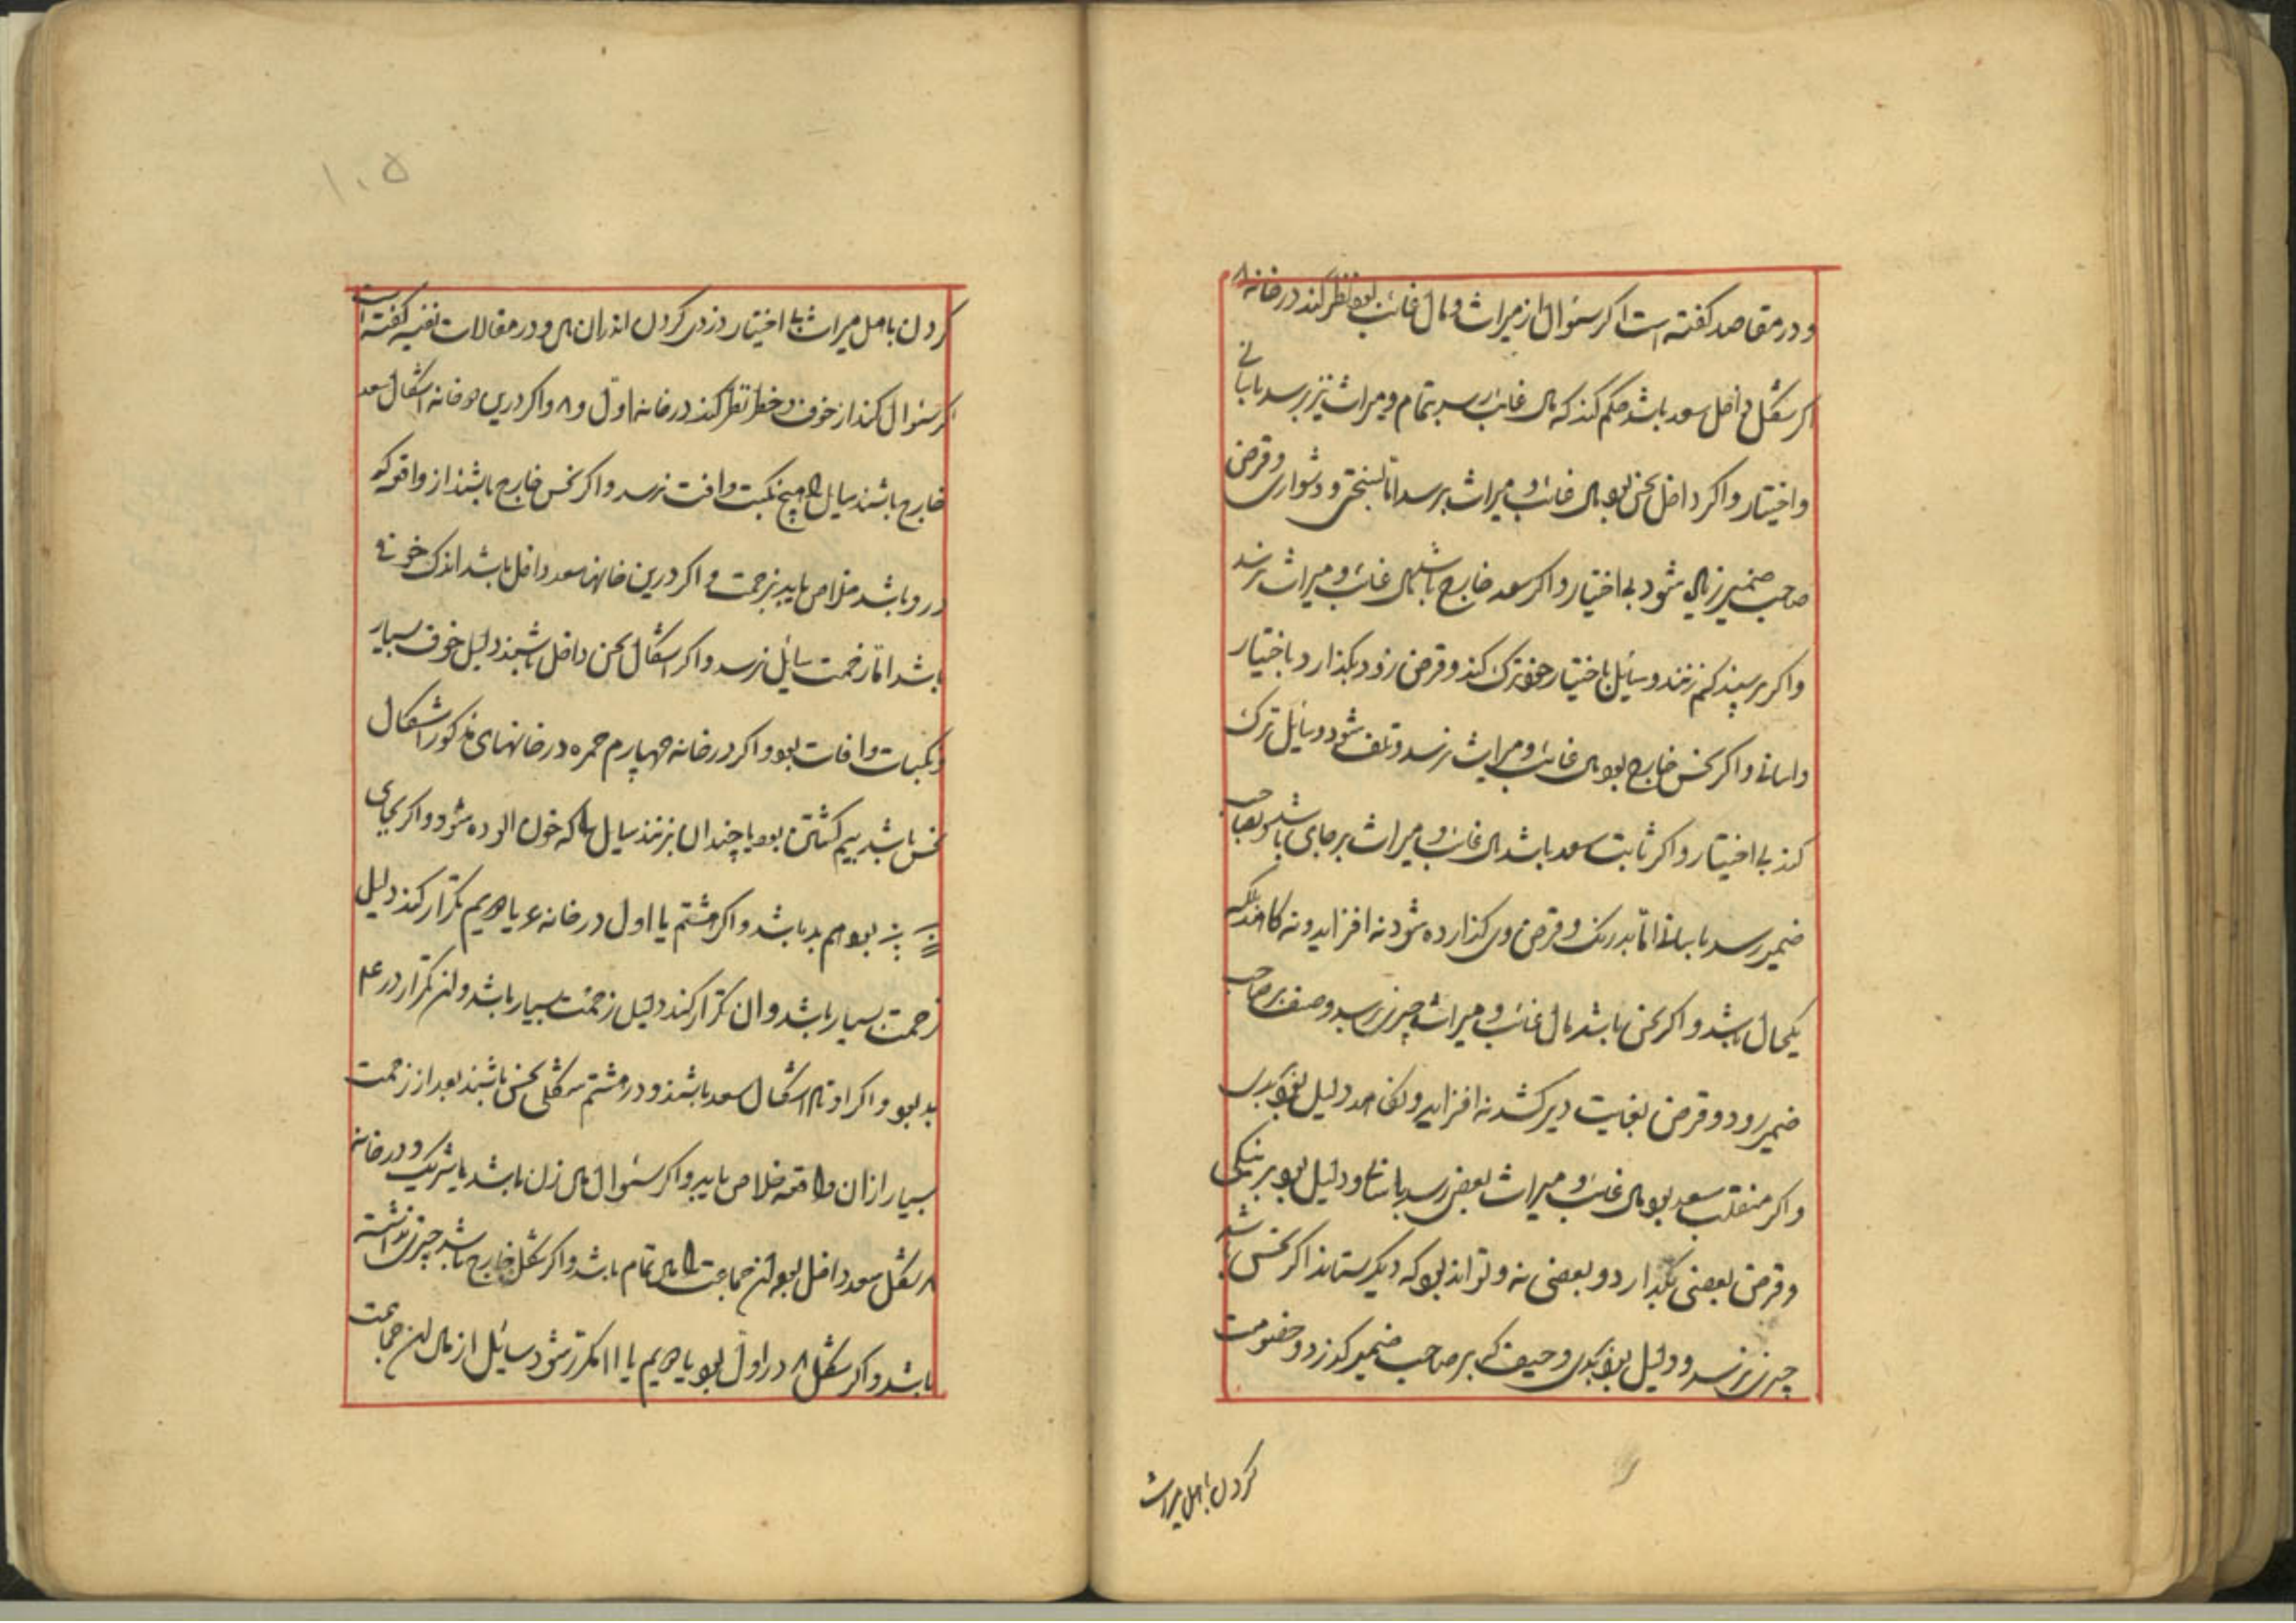 و در مقاصد کفته است اکر سئوال از میراث و مال غائب بود نظر کند در خانه ۸
اکر شکل داخل سعد باشد حکم کند که مال غائب رسد بتمام و میراث نیز برسد باسانی
و اختیار و اکر داخل نحس بود مال غائب و میراث برسد اما بسختی و دشواری و قرض
صاحب ضمیر زایل شود بی اختیار و اکر سعد خارج باشد مال غائب و میراث نرسد
و اکر برسد کم رسد و سایل باختیار خود ترک کند و قرض زود بکذارد باختیار
و اسانی و اکر نحس خارج بود مال غائب و میراث نرسد و تلف شود و سایل ترک
کند بی اختیار و اکر ثابت سعد باشد مال غائب و میراث بر جای باشد و بصاحب
ضمیر رسد باسانی اما بدرنک و قرض وی کذارده شود نه افزاید و نه کاهد بلکه
یکحال باشد و اکر نحس باشد مال غائب و میراث چیزی نرسد و حیف بر صاحب
ضمیر رود و قرض بغایت دیر کشد نه افزاید و نکاهد دلیل بود ببدی
و اکر منقلب سعد بود مال غائب و میراث بعضی رسد باسانی و دلیل بود بر نیکی
و قرض بعضی بکذارد و بعضی نه و تواند بود که دیکر ستاند اکر نحس باشد
چیزی نرسد و دلیل بود ببدی و حیف که بر صاحب ضمیر کذرد و خصومت
کردن باهل میراث
۱۰۵
کردن باهل میراث بی اختیار دزدی کردن اندران مال و در مقالات نفیسه کفته است
اکر سئوال کند از خوف و خطر نظر کند در خانه اول و ۸ و اکر درین دو خانه اشکال سعد
خارج باشند سایل را هیچ نکبت و افت نرسد و اکر نحس خارج باشند از واقعه که
در و باشد خلاص یابد بزحمت و اکر درین خانها سعد داخل باشد اندک خوفی
باشد اما زحمت سایل نرسد و اکر اشکال نحس داخل باشند دلیل خوف بسیار
و نکبات و افات بود و اکر در خانه چهارم حمره در خانهای مذکور اشکال
نحس باشد بیم کشتن بود یا چندان بزنند سایل را که خون الوده شود و اکر بجای
بود هم بد باشد و اکر هشتم یا اول در خانه ۶ یا دویم تکرار کند دلیل
زحمت بسیار باشد و ان تکرار کند دلیل زحمت بسیار باشد و این تکرار در ۴
بد بود و اکر اوتاد اشکال سعد باشند و در هشتم شکلی نحس باشند بعد از زحمت
بسیار از ان واقعه خلاص یابد و اکر سئوال مال زن باشد یا شریک و در خانه
۸ شکل سعد داخل بود این جماعت را مال تمام باشد و اکر شکل خارج باشد چیزی نداشته
باشد و اکر شکل ۸ در اول بود یا دویم یا ۱۱ مکرر شود سائل از مال این جماعت